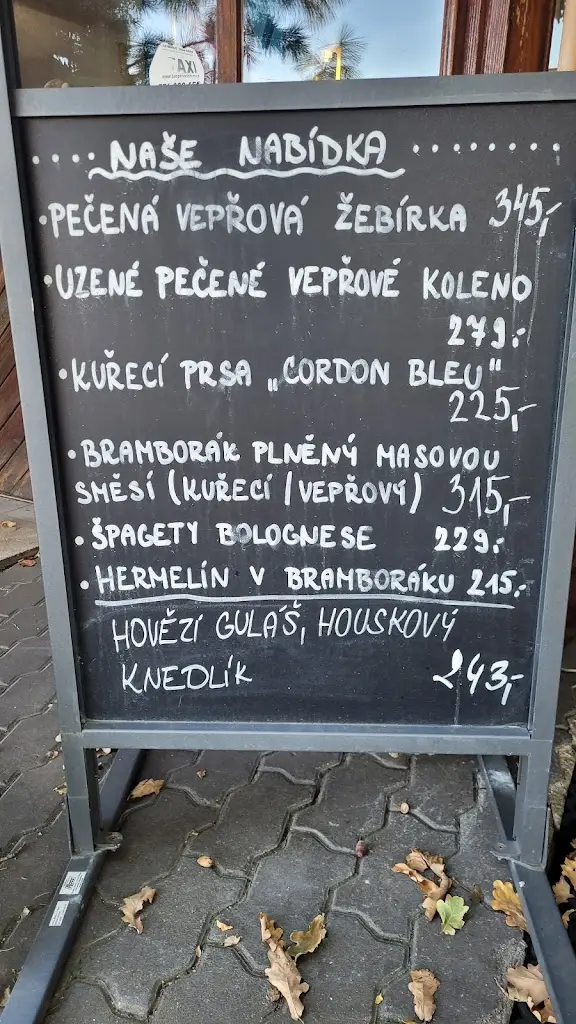 TAXI
.... NAŠE NABÍDKA ........
• PEČENÁ VEPŘOVÁ ŽEBÍRKA 345,-
• UZENÉ PEČENÉ VEPŘOVÉ KOLENO
279.-
• KUŘECÍ PRSA „CORDON BLEU"
225,-
• BRAMBORÁK PLNĚNÝ MASOVOU
SMĚSÍ (KUŘECÍ / VEPŘOVÝ) 315,-
• ŠPAGETY BOLOGNESE 229.-
• HERMELÍN V BRAMBORÁKU 215.-
HOVĚZÍ GULÁŠ, HOUSKOVÝ
KNEDLÍK 243,-